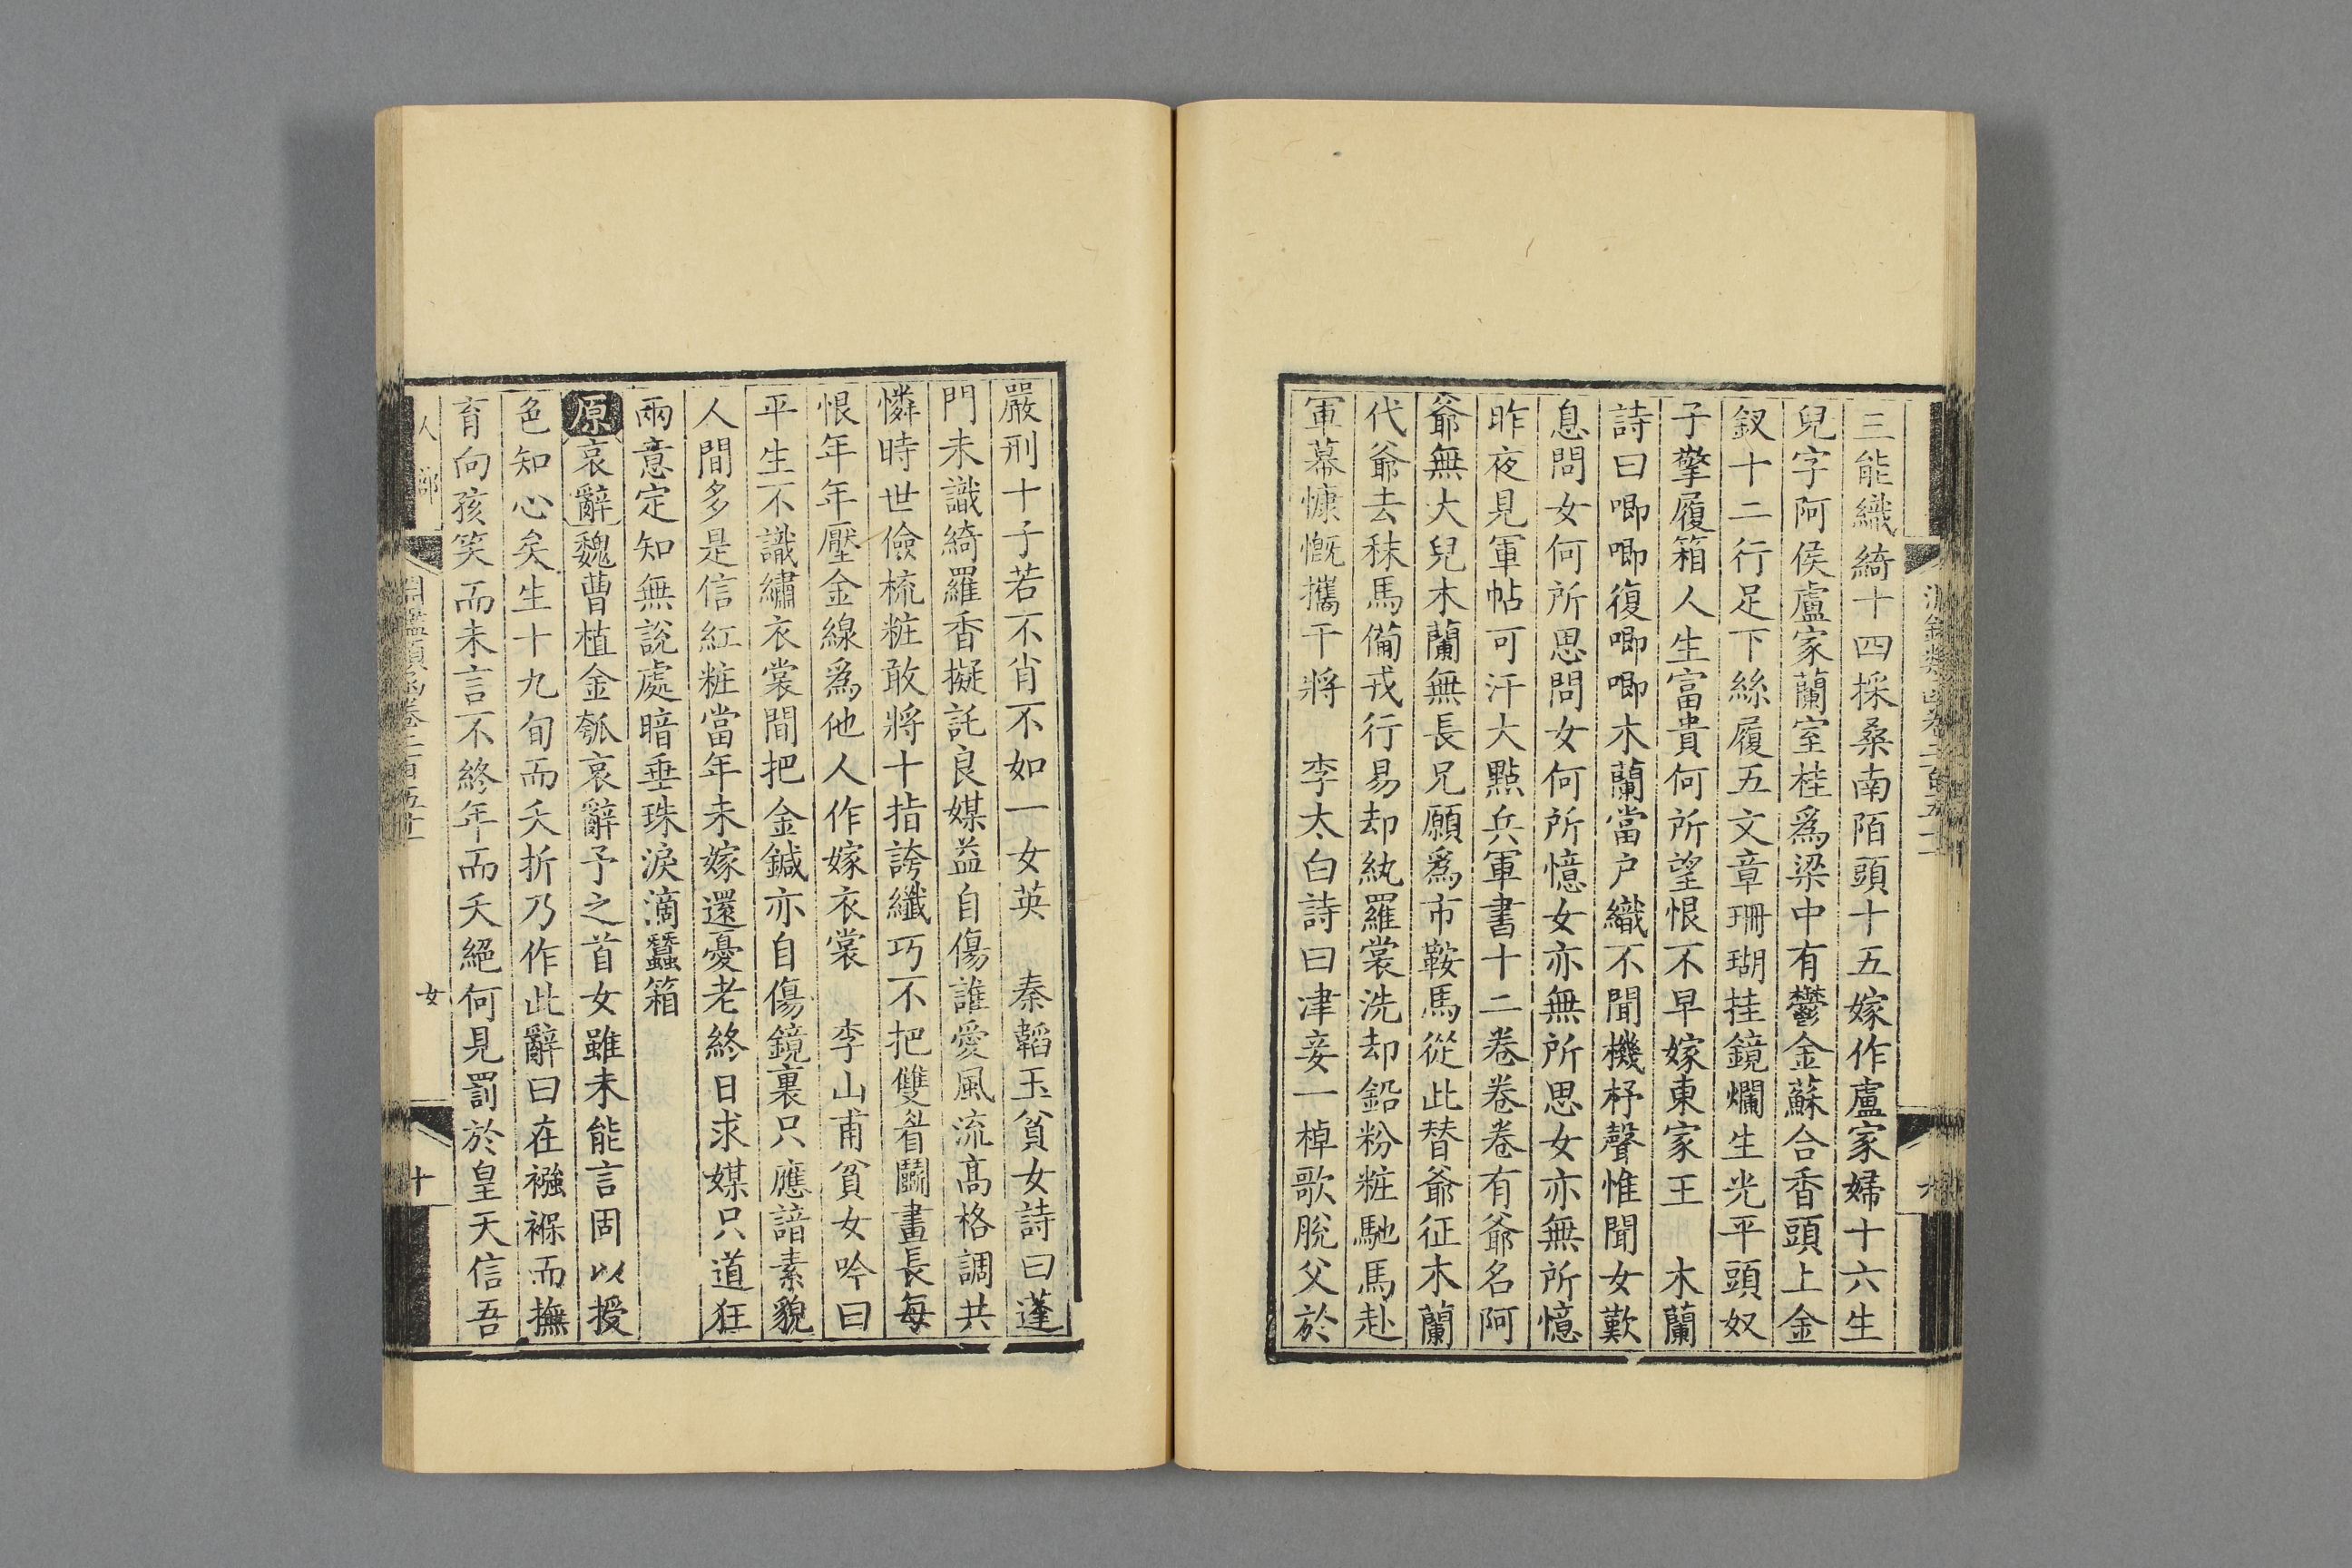 三能織綺十四採桑南陌頭十五嫁作盧家婦十六生
兒字阿侯盧家蘭室桂爲梁中有鬱金蘇合香頭上金
釵十二行足下絲履五文章珊瑚挂鏡爛生光平頭奴
子擎履箱人生富貴何所望恨不早嫁東家王　木蘭
詩曰唧唧復唧唧木蘭當户織不聞機杼聲惟聞女歎
息問女何所思問女何所憶女亦無所思女亦無所憶
昨夜見軍帖可汗大點兵軍書十二卷卷卷有爺名阿
爺無大兒木蘭無長兄願爲市鞍馬從此替爺征木蘭
代爺去秣馬備戎行易却紈羅裳洗却鉛粉粧馳馬赴
軍幕慷慨攜干將　李太白詩曰津妾一棹歌脫父於
嚴刑十子若不肖不如一女英　秦韜玉貧女詩曰蓬
門未識綺羅香擬託良媒益自傷誰愛風流髙格調共
憐時世儉梳粧敢將十指誇纖巧不把雙眉鬬畫長每
恨年年壓金線爲他人作嫁衣裳　李山甫貧女吟曰
平生不識繡衣裳間把金鍼亦自傷鏡裏只應諳素貌
人間多是信紅粧當年未嫁還憂老終日求媒只道狂
兩意定知無說處暗垂珠淚滴蠶箱
原哀辭魏曹植金瓠哀辭予之首女雖未能言固以授
色知心矣生十九旬而夭折乃作此辭曰在襁褓而撫
育向孩笑而未言不終年而夭絕何見罰於皇天信吾
人部
女
十